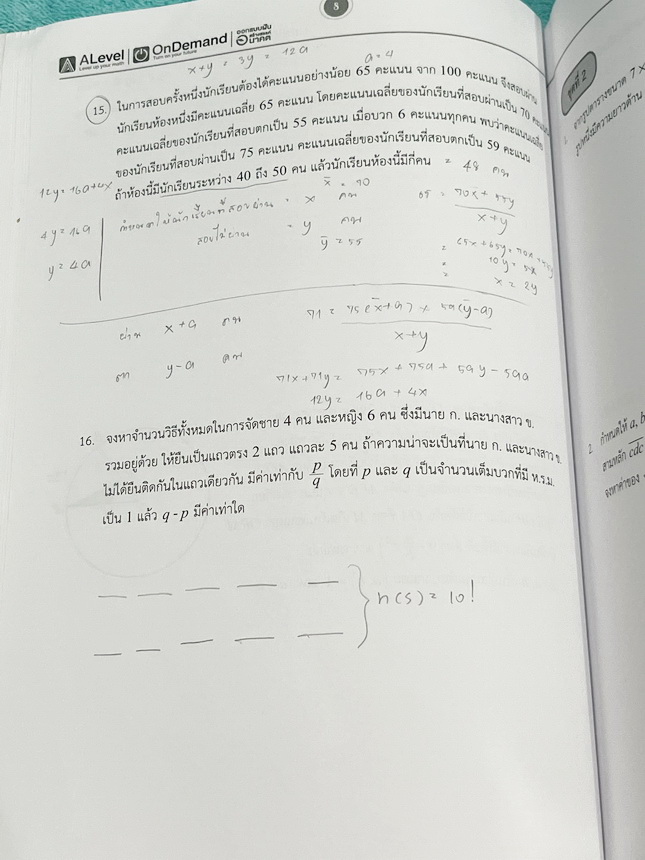 8
ALevel
Level up your math
OnDemand
Turn on your future
ออกแบบฝัน
สร้างสรรค์
อนาคต
x+y = 3y = 12a
a = 4
15. ในการสอบครั้งหนึ่งนักเรียนต้องได้คะแนนอย่างน้อย 65 คะแนน จาก 100 คะแนน จึงสอบผ่าน
นักเรียนห้องหนึ่งมีคะแนนเฉลี่ย 65 คะแนน โดยคะแนนเฉลี่ยของนักเรียนที่สอบผ่านเป็น 70 คะแนน
คะแนนเฉลี่ยของนักเรียนที่สอบตกเป็น 55 คะแนน เมื่อบวก 6 คะแนนทุกคน พบว่าคะแนนเฉลี่ย
ของนักเรียนที่สอบผ่านเป็น 75 คะแนน คะแนนเฉลี่ยของนักเรียนที่สอบตกเป็น 59 คะแนน
ถ้าห้องนี้มีนักเรียนระหว่าง 40 ถึง 50 คน แล้วนักเรียนห้องนี้มีกี่คน = 48 คน
12y = 16a+4x
4y = 16a
y = 4a
x̄ = 70
= x คน
สอบไม่ผ่าน = y คน
ȳ = 55
65 = 70x + 55y
x+y
x = 2y
ผ่าน x+a คน
ตก y-a คน
71 = 75(x+a) + 59(y-a)
x+y
71x+71y = 75x + 75a + 59y - 59a
12y = 16a + 4x
16. จงหาจำนวนวิธีทั้งหมดในการจัดชาย 4 คน และหญิง 6 คน ซึ่งมีนาย ก. และนางสาว ข.
รวมอยู่ด้วย ให้ยืนเป็นแถวตรง 2 แถว แถวละ 5 คน ถ้าความน่าจะเป็นที่นาย ก. และนางสาว ข.
ไม่ได้ยืนติดกันในแถวเดียวกัน มีค่าเท่ากับ p/q โดยที่ p และ q เป็นจำนวนเต็มบวกที่มี ห.ร.ม.
เป็น 1 แล้ว q - p มีค่าเท่าใด
n(S) = 10!
ชุดที่ 2
จากรูปตารางขนาด 7 ×
รูปหนึ่งมีความยาวด้าน
2. กำหนดให้ a, b
ตามหลัก cdc
จงหาค่าของ